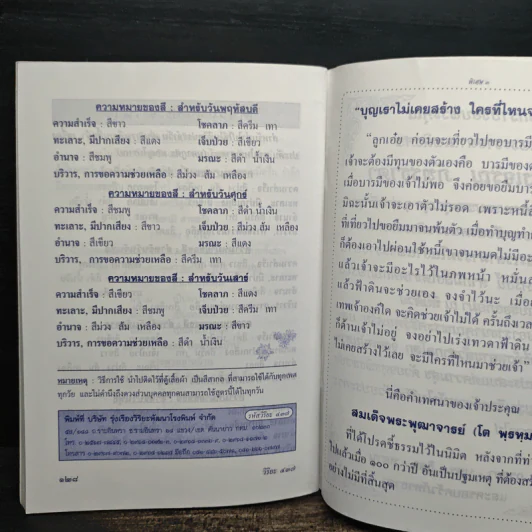 ความหมายของสี : สำหรับวันพฤหัสบดี
ความสำเร็จ : สีขาว โชคลาภ : สีครีม เทา
ทะเลาะ, มีปากเสียง : สีแดง เจ็บป่วย : สีเขียว
อำนาจ : สีชมพู มรณะ : สีดำ น้ำเงิน
บริวาร, การขอความช่วยเหลือ : สีม่วง ส้ม เหลือง
ความหมายของสี : สำหรับวันศุกร์
ความสำเร็จ : สีชมพู โชคลาภ : สีดำ น้ำเงิน
ทะเลาะ, มีปากเสียง : สีขาว เจ็บป่วย : สีม่วง ส้ม เหลือง
อำนาจ : สีเขียว มรณะ : สีแดง
บริวาร, การขอความช่วยเหลือ : สีครีม เทา
ความหมายของสี : สำหรับวันเสาร์
ความสำเร็จ : สีเขียว โชคลาภ : สีแดง
ทะเลาะ, มีปากเสียง : สีชมพู เจ็บป่วย : สีครีม เทา
อำนาจ : สีม่วง ส้ม เหลือง มรณะ : สีขาว
บริวาร, การขอความช่วยเหลือ : สีดำ น้ำเงิน
หมายเหตุ : วิธีการใช้ นำไปติดไว้ที่ตู้เสื้อผ้า เป็นสีสากล ที่สามารถใช้ได้กับทุกเพศ
ทุกวัย และไม่คำนึงถึงดวงส่วนบุคคลทุกคนสามารถใช้สูตรนี้ได้ในทุกวัน
พิมพ์ที่ บริษัท รุ่งเรืองวิริยะพัฒนาโรงพิมพ์ จำกัด รหัสวิริยะ ๔๓๗
วิริยะ ๔๓๗
๑๒๘
"บุญเราไม่เคยสร้าง ใครที่ไหนจ
"ลูกเอ๋ย ก่อนจะเที่ยวไปขอบารมี
เจ้าจะต้องมีทุนของตัวเองคือ บารมีของต
เมื่อบารมีของเจ้าไม่พอ จึงค่อยขอยืมบาร
มิฉะนั้นเจ้าจะเอาตัวไม่รอด เพราะหนี้
ที่เที่ยวไปขอยืมมาจนพ้นตัว เมื่อทำบุญทำ
ก็ต้องเอาไปผ่อนใช้หนี้เขาจนหมดไม่มีอะ
แล้วเจ้าจะมีอะไรไว้ในภพหน้า หมั่นส
แล้วฟ้าดินจะช่วยเอง จงจำไว้นะ เมื่อ
เทพเจ้าองค์ใด จะคิดช่วยเจ้าไม่ได้ ครั้นถึงเวล
ก็ต้านเจ้าไม่อยู่ จงอย่าไปเร่งเทวดาฟ้าดิน
ไม่เคยสร้างไว้เลย จะมีใครที่ไหนมาช่วยเจ้า"
นี่คือคำเทศนาของเจ้าประคุณ
สมเด็จพระพุฒาจารย์ (โต พุธหม
ที่ได้โปรดชี้ธรรมไว้ในนิมิต หลังจากที่ท่า
ไปแล้วเมื่อ ๑๐๐ กว่าปี อันเป็นปฐมเหตุ ที่ต้องสร้
อย่างไม่มีที่สิ้นสุด